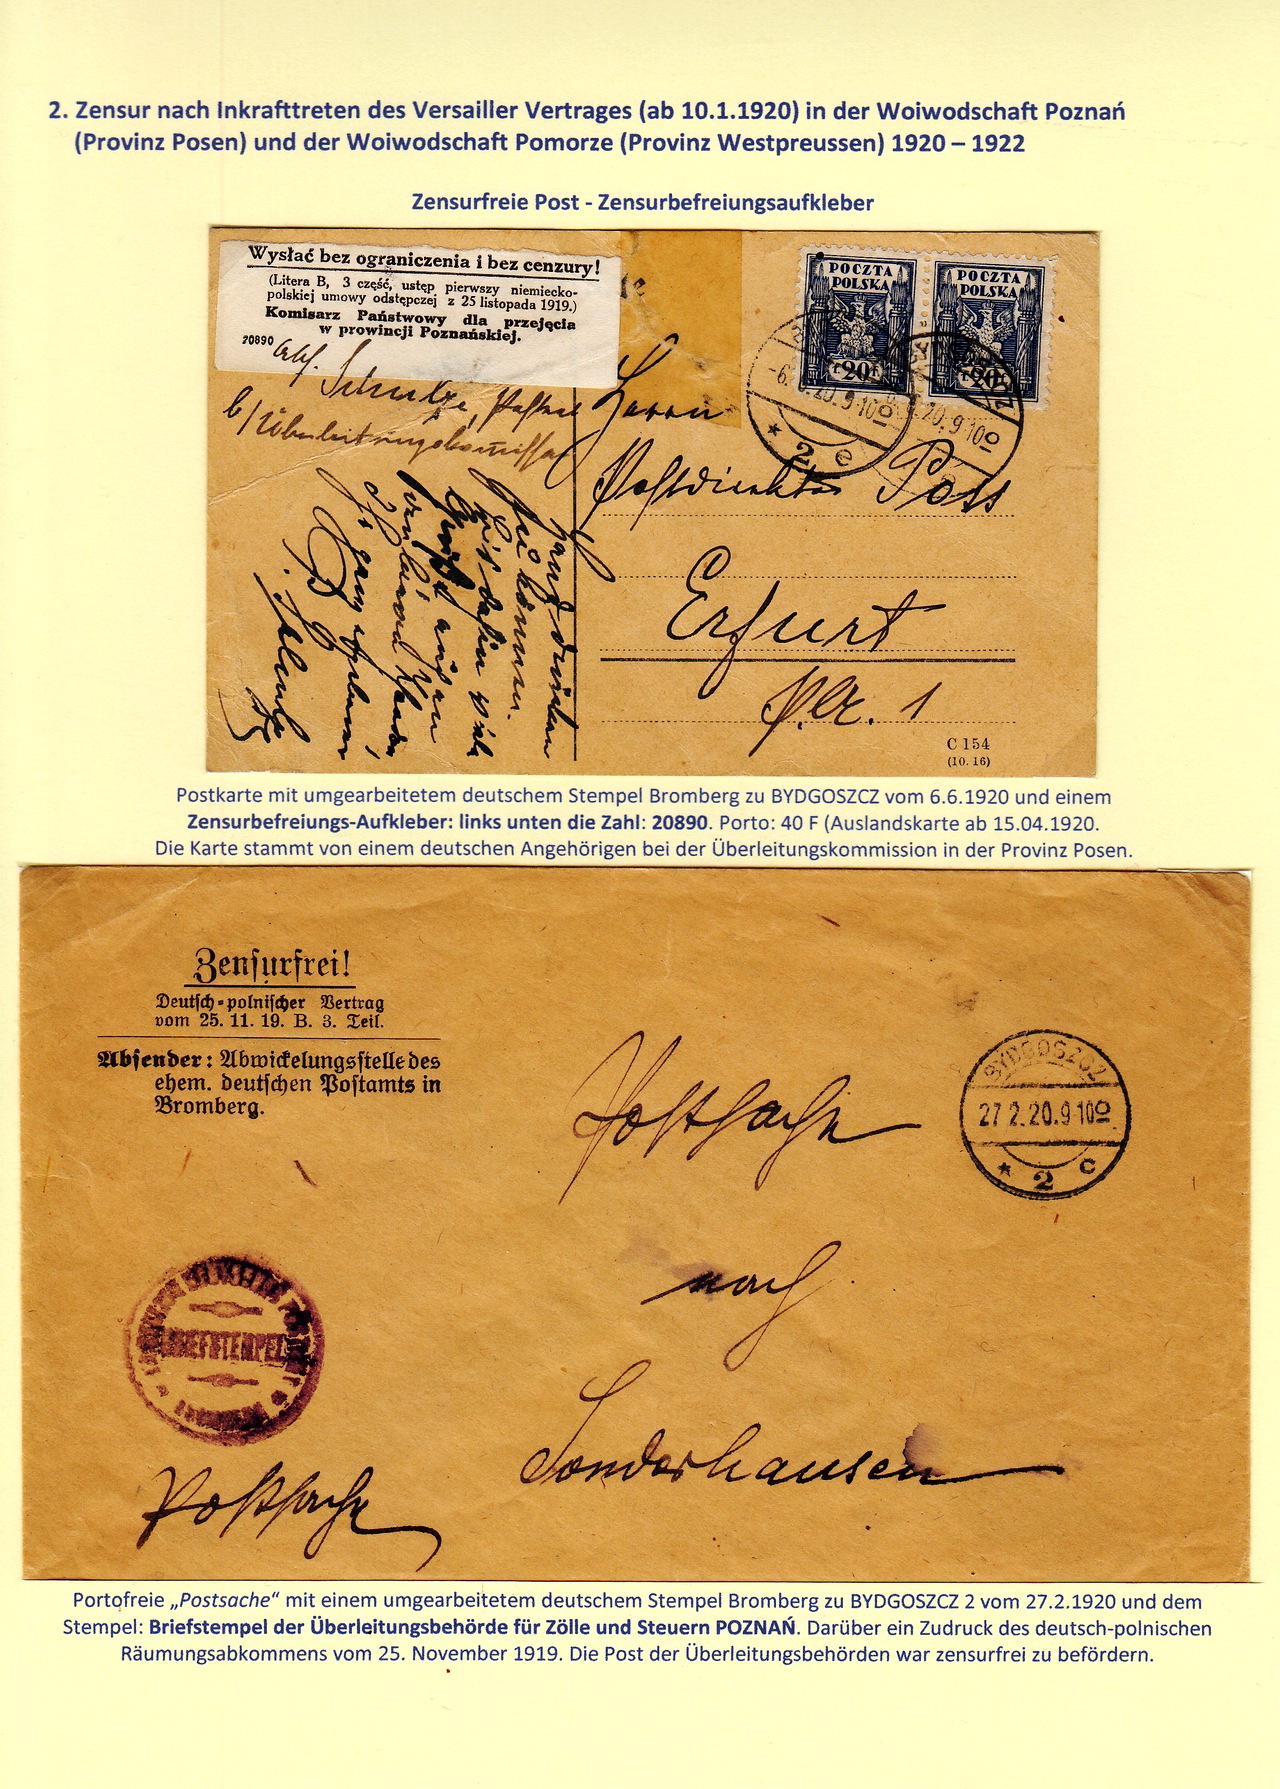 2. Zensur nach Inkrafttreten des Versailler Vertrages (ab 10.1.1920) in der Woiwodschaft Poznań
(Provinz Posen) und der Woiwodschaft Pomorze (Provinz Westpreussen) 1920 – 1922
Zensurfreie Post - Zensurbefreiungsaufkleber
Wysłać bez ograniczenia i bez cenzury!
(Litera B, 3 część, ustęp pierwszy niemiecko-
polskiej umowy odstępczej z 25 listopada 1919.)
Komisarz Państwowy dla przejęcia
w prowincji Poznańskiej.
20890
Abs. Schulze,
b/Überleitungskommission
POCZTA
POLSKA
20
POCZTA
POLSKA
20
-6.6.20.9-10
20.9-10
* 2 e
Herrn
Postdirektor Poss
Erfurt
P.A. 1
C 154
(10. 16)
Postkarte mit umgearbeitetem deutschem Stempel Bromberg zu BYDGOSZCZ vom 6.6.1920 und einem
Zensurbefreiungs-Aufkleber: links unten die Zahl: 20890. Porto: 40 F (Auslandskarte ab 15.04.1920.
Die Karte stammt von einem deutschen Angehörigen bei der Überleitungskommission in der Provinz Posen.
Zensurfrei!
Deutsch-polnischer Vertrag
vom 25. 11. 19. B. 3. Teil.
Absender: Abwickelungsstelle des
ehem. deutschen Postamts in
Bromberg.
BYDGOSZCZ
27 2.20.9-10
* 2 c
Postsache
nach
Sonderhausen
BRIEFSTEMPEL
Postsache
Portofreie „Postsache“ mit einem umgearbeitetem deutschem Stempel Bromberg zu BYDGOSZCZ 2 vom 27.2.1920 und dem
Stempel: Briefstempel der Überleitungsbehörde für Zölle und Steuern POZNAŃ. Darüber ein Zudruck des deutsch-polnischen
Räumungsabkommens vom 25. November 1919. Die Post der Überleitungsbehörden war zensurfrei zu befördern.